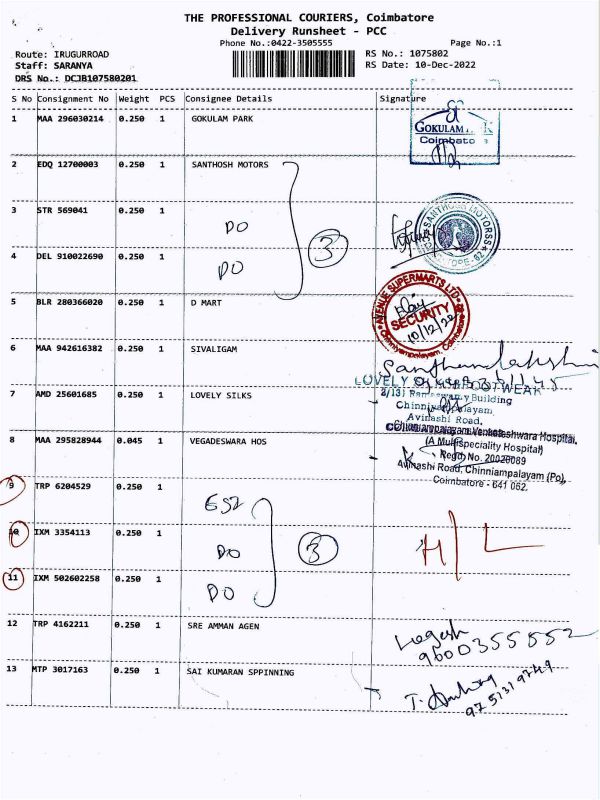 THE PROFESSIONAL COURIERS, Coimbatore
Delivery Runsheet - PCC
Phone No.:0422-3505555 Page No.:1
Route: IRUGURROAD RS No.: 1075802
Staff: SARANYA RS Date: 10-Dec-2022
DRS No.: DCJB107580201
S No Consignment No Weight PCS Consignee Details Signature
1 MAA 296030214 0.250 1 GOKULAM PARK
GOKULAM PARK
Coimbato
2 EDQ 12700003 0.250 1 SANTHOSH MOTORS
3 STR 569041 0.250 1 DO
SANTHOSH MOTORSS
3
4 DEL 910022690 0.250 1 DO
5 BLR 280366020 0.250 1 D MART
AVENUE SUPERMARTS LTD
SECURITY
10/12/22
Chinniyampalayam, Coimbatore
6 MAA 942616382 0.250 1 SIVALIGAM
LOVELY
7 AMD 25601685 0.250 1 LOVELY SILKS
Building
Chinniyampalayam,
Avinashi Road,
8 MAA 295828944 0.045 1 VEGADESWARA HOS
Hospital,
(A Multispeciality Hospital)
Regd No. 20020089
Avinashi Road, Chinniampalayam (Po),
Coimbatore - 641 062.
9 TRP 6204529 0.250 1
10 IXM 3354113 0.250 1 DO
3
11 IXM 502602258 0.250 1 DO
12 TRP 4162211 0.250 1 SRE AMMAN AGEN
Logesh
9600355552
13 MTP 3017163 0.250 1 SAI KUMARAN SPPINNING